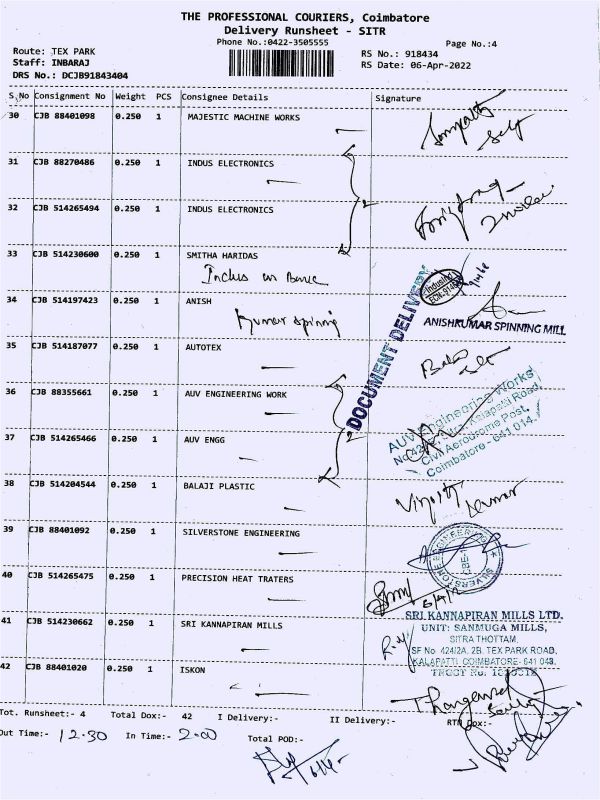 THE PROFESSIONAL COURIERS, Coimbatore
Delivery Runsheet - SITR
Phone No.:0422-3505555
Page No.:4
Route: TEX PARK
Staff: INBARAJ
DRS No.: DCJB91843404
RS No.: 918434
RS Date: 06-Apr-2022
S.No Consignment No Weight PCS Consignee Details Signature
30 CJB 88401098 0.250 1 MAJESTIC MACHINE WORKS
Self
31 CJB 88270486 0.250 1 INDUS ELECTRONICS
2
32 CJB 514265494 0.250 1 INDUS ELECTRONICS
33 CJB 514230600 0.250 1 SMITHA HARIDAS
Indusind
34 CJB 514197423 0.250 1 ANISH
Kumar Spinning
ANISHKUMAR SPINNING MILL
DOCUMENT DELIVERY
35 CJB 514187077 0.250 1 AUTOTEX
36 CJB 88355661 0.250 1 AUV ENGINEERING WORK
2
AUV Engineering Works
Civil Aerodrome Post,
Coimbatore - 641 014.
37 CJB 514265466 0.250 1 AUV ENGG
38 CJB 514204544 0.250 1 BALAJI PLASTIC
Kumar
39 CJB 88401092 0.250 1 SILVERSTONE ENGINEERING
40 CJB 514265475 0.250 1 PRECISION HEAT TRATERS
41 CJB 514230662 0.250 1 SRI KANNAPIRAN MILLS
SRI KANNAPIRAN MILLS LTD.
UNIT: SANMUGA MILLS,
SITRA THOTTAM,
SF No. 424/2A, 2B, TEX PARK ROAD,
KALAPATTI COIMBATORE- 641 048.
42 CJB 88401020 0.250 1 ISKON
Tot. Runsheet:- 4 Total Dox:- 42 I Delivery:- II Delivery:- RTN Dox:-
Out Time:- 12.30 In Time:- 2.00 Total POD:-